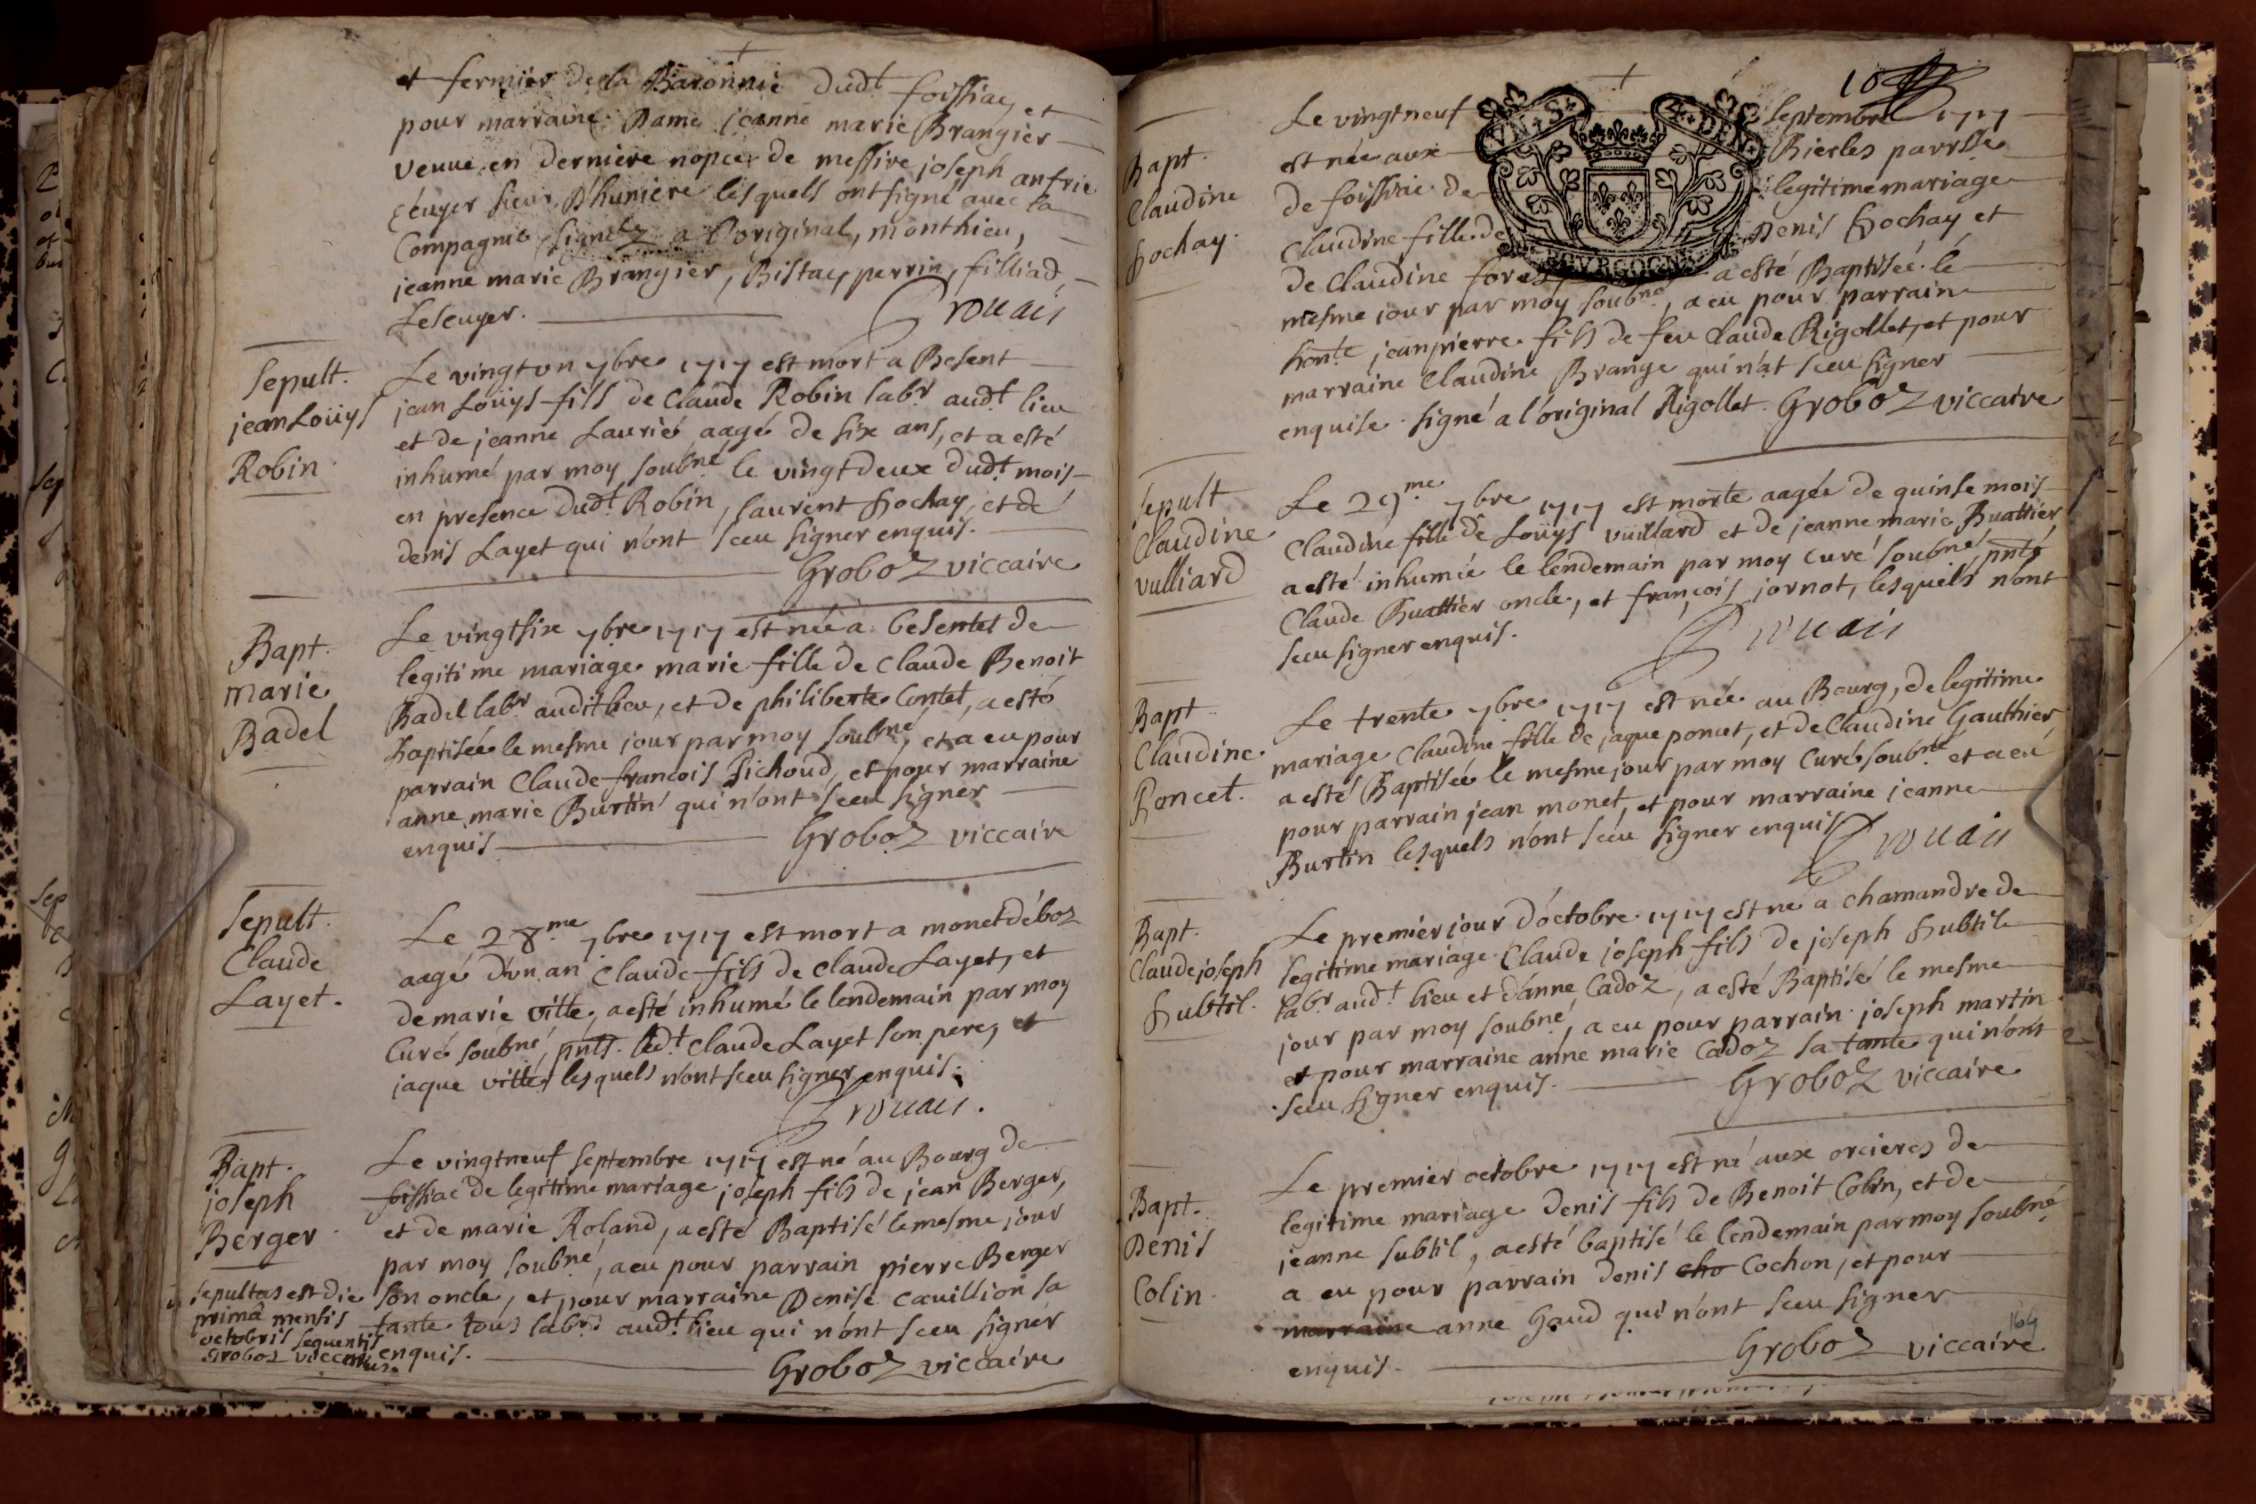 et fermier de la Baronnie dudt foissiac, et
pour marraine Dame jeanne marie Brangier
veuve en derniere nopce de messire joseph anfrie
écuyer sieur Dhuniere lesquels ont signé avec la
Compagnie, signéz a l'original, monthieu,
jeanne marie Brangier, Bistac, perrin, filliad,
Lescuyer. Grouais
Sepult.
jean Loüys
Robin
Le vingt vn 7bre 1717 est mort a Besent
jean Loüys fils de Claude Robin labr audt. lieu
et de jeanne Laurié, aagé de six ans, et a esté
inhumé par moy soubné le vingt deux dudt. mois
en presence dudt. Robin, laurent hochay, et de
denis Layet qui n'ont sceu signer enquis.
Groboz viccaire
Bapt.
marie
Badel
Le vingtsix 7bre 1717 est née a besentet de
legitime mariage marie fille de Claude Benoit
Badel labr audit lieu, et de philiberte Contet, a esté
baptisée le mesme jour par moy soubné, et a eu pour
parrain Claude francois Pichoud, et pour marraine
anne marie Burtin qui n'ont sceu signer
enquis Groboz viccaire
Sepult.
Claude
Layet.
Le 28me. 7bre 1717 est mort a monetdéboz
aagé d'vn an Claude fils de Claude Layet, et
de marie ville, a esté inhumé le lendemain par moy
Curé soubné, pnts. ledt. Claude Layet son pere, et
jaque ville, lesquels n'ont sceu signer enquis.
Grouais.
Bapt.
joseph
Berger
Le vingtneuf septembre 1717 est né au Bourg de
foissiac de legitime mariage joseph fils de jean Berger,
et de marie Roland, a esté Baptisé le mesme jour
par moy soubné, a eu pour parrain pierre Berger
son oncle, et pour marraine Denise Cavillion sa
tante tous labrs audt. lieu qui n'ont sceu signer
enquis. Groboz viccaire
sepultus est die
primâ mensis
octobris sequentis
Groboz viccarius
10
Bapt.
Claudine
hochay.
Le vingtneuf septembre 1717
est née aux Biesles parrsse
de foissiac de legitime mariage
Claudine fille de Denis hochay et
BOVRGOGNE
de Claudine fores a esté Baptisée le
mesme jour par moy soubné, a eu pour parrain
honte jeanpierre fils de feu Claude Rigollet, et pour
marraine Claudine Brange qui n'at sceu signer
enquise. signé a l'original Rigollet. Groboz viccaire
Sepult
Claudine
vulliard
Le 29me 7bre 1717 est morte aagée de quinse mois
Claudine fille de Loüys vuillard et de jeanne marie Buattier
a esté inhumée le lendemain par moy curé soubné, pnts
Claude Buattier oncle, et françois jornot, lesquels n'ont
sceu signer enquis. Grouais
Bapt
Claudine
Poncet.
Le trente 7bre 1717 est née au Bourg, de legitime
mariage Claudine fille de jaque poncet, et de Claudine Gauthier
a esté Baptisée le mesme jour par moy Curé soubné et a eu
pour parrain jean monet, et pour marraine jeanne
Burtin lesquels n'ont sceu signer enquis Grouais
Bapt.
Claude joseph
Subtil.
Le premier jour d'octobre 1717 est né a chamandre de
legitime mariage Claude joseph fils de joseph Subtil
labr audt. lieu et d'anne Cadoz, a esté Baptisé le mesme
jour par moy soubné, a eu pour parrain joseph martin
et pour marraine anne marie Cadoz sa tante qui n'ont
sceu signer enquis. Groboz viccaire
Bapt.
Denis
Colin
Le premier octobre 1717 est né aux orcieres de
legitime mariage Denis fils de Benoit Colin, et de
jeanne subtil, a esté baptisé le lendemain par moy soubné
a eu pour parrain Denis cho Cochon, et pour
marraine anne Gaud qui n'ont sceu signer
enquis. Groboz viccaire
164